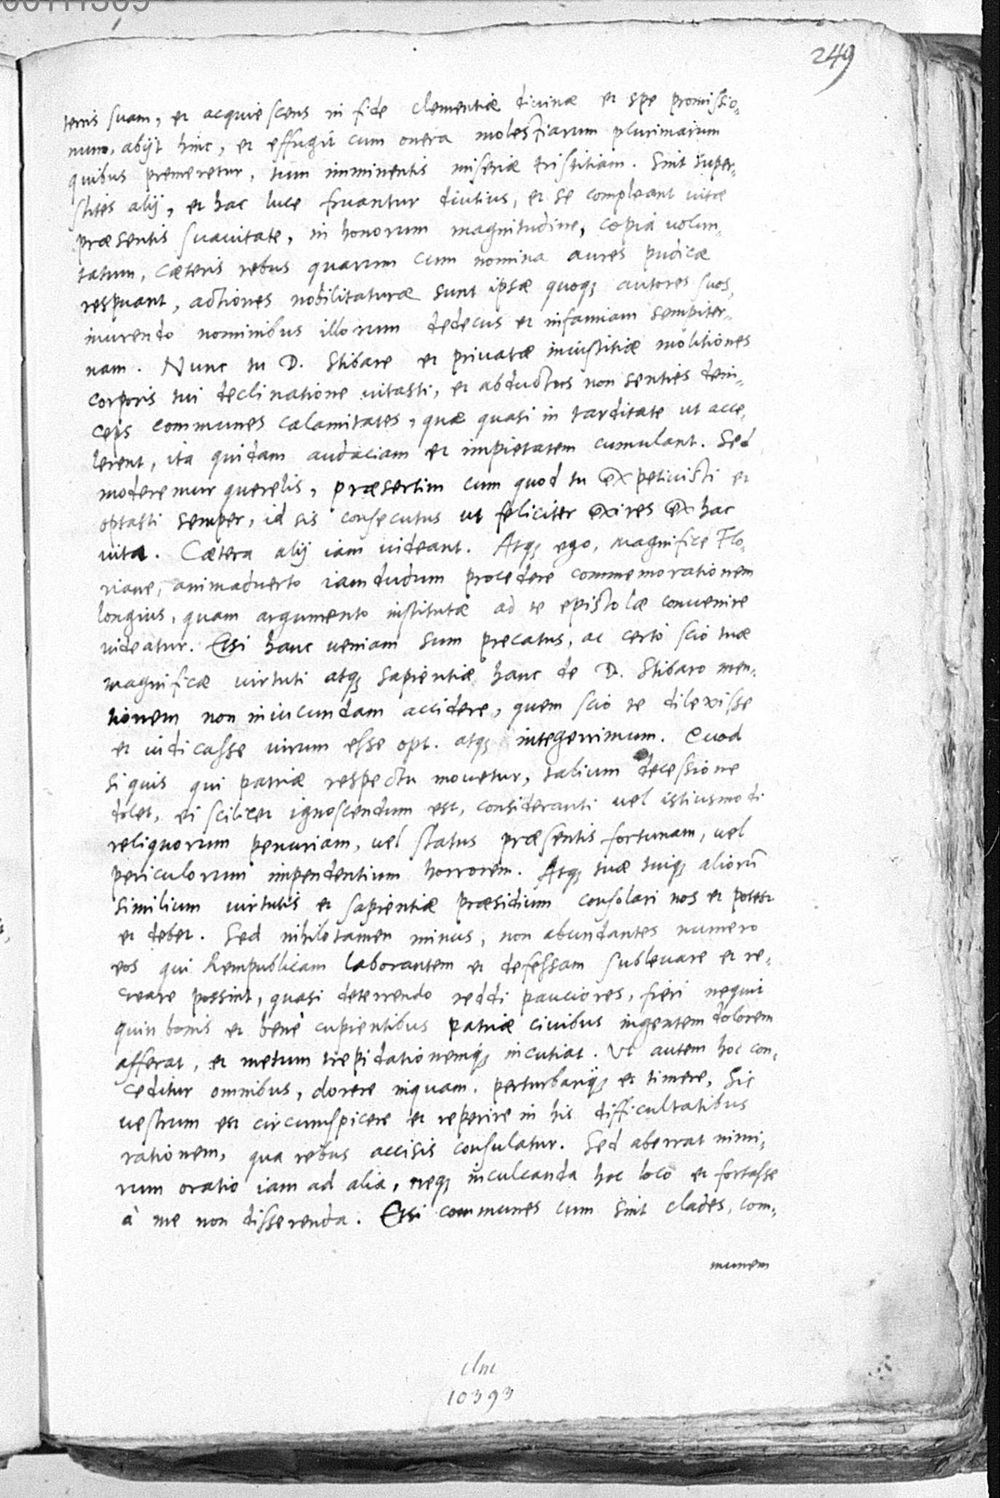 249
ternis suam, et acquiescens in fide clementiæ diuinæ et spe promissio,
num, abijt hinc, et effugit cum onera molestiarum plurimarum
quibus premeretur, tum imminentis miseriæ tristitiam. Sint super,
stites alij, et hac luce fruantur diutius, et se compleant uitæ
præsentis suauitate, in honorum magnitudine, copia uolun,
tatum, cæteris rebus quarum cum nomina aures pudicæ
respuant, actiones nobilitaturæ sunt ipsæ quoq; autores suos,
inurendo nominibus illorum dedecus et infamiam sempiter,
nam. Nunc tu D. Stibare et priuatæ iniustitiæ molitiones
corporis tui declinatione uitasti, et abductus non senties dein,
ceps communes calamitates, quæ quasi in tarditate ut acce,
lerent, ita quidam audaciam et impietatem cumulant. Sed
moderemur querelis, præsertim cum quod tu expetiuisti et
optasti semper, id sis consecutus ut feliciter exires ex hac
uita. Cætera alij iam uideant. Atq; ego, magnifice Flo,
riane, animaduerto iamdudum procedere commemorationem
longius, quam argumento institutæ ad te epistolæ conuenire
uideatur. Etsi hanc ueniam sum precatus, ac certo scio tuæ
magnificæ uirtuti atq; sapientiæ hanc de D. Stibaro men,
tionem non iniucundam accidere, quem scio te dilexisse
et iudicasse uirum esse opt. atq; integerrimum. Quod
si quis qui patriæ respectu mouetur, talium decessione
dolet, ei scilicet ignoscendum est, consideranti uel istiusmodi
reliquorum penuriam, uel status præsentis fortunam, uel
periculorum impendentium horrorem. Atq; tuæ tuiq; aliorū
similium uirtutis et sapientiæ præsidium consolari nos et potest
et debet. Sed nihilotamen minus, non abundantes numero
eos qui Rempublicam laborantem et defessam subleuare et re,
creare possint, quasi deterrendo reddi pauciores, fieri nequit
quin bonis et benè cupientibus patriæ ciuibus ingentem dolorem
afferat, et metum trepidationemq; incutiat. Vt autem hoc con,
ceditur omnibus, dolere inquam, perturbariq; et timere, Sic
uestrum est circumspicere et reperire in his difficultatibus
rationem, qua rebus accisis consulatur. Sed aberrat nimi,
rum oratio iam ad alia, neq; inculcanda hoc loco et fortasse
à me non disserenda. Etsi communes cum sint clades, com,
munem
clm
10393